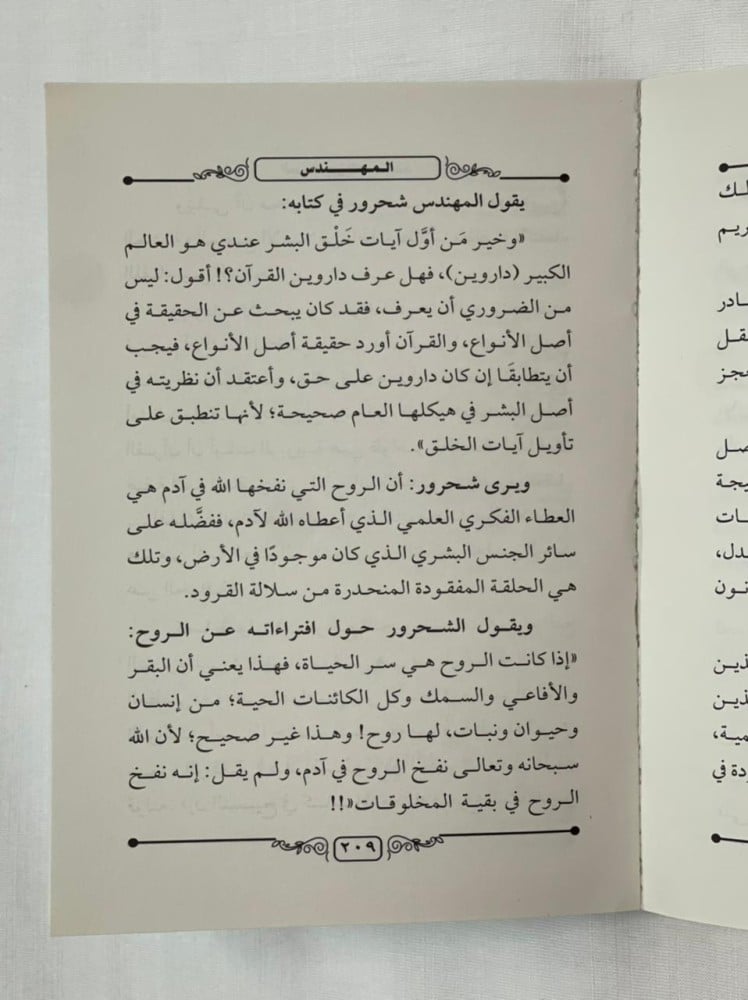 المهندس
يقول المهندس شحرور في كتابه:
«وخير مَن أوَّل آيات خَلْق البشر عندي هو العالم
الكبير (داروين)، فهل عرف داروين القرآن؟! أقول: ليس
من الضروري أن يعرف، فقد كان يبحث عن الحقيقة في
أصل الأنواع، والقرآن أورد حقيقة أصل الأنواع، فيجب
أن يتطابقَا إن كان داروين على حق، وأعتقد أن نظريته في
أصل البشر في هيكلها العام صحيحة؛ لأنها تنطبق على
تأويل آيات الخلق».
ويرى شحرور: أن الروح التي نفخها الله في آدم هي
العطاء الفكري العلمي الذي أعطاه الله لآدم، ففضَّله على
سائر الجنس البشري الذي كان موجودًا في الأرض، وتلك
هي الحلقة المفقودة المنحدرة من سلالة القرود.
ويقول الشحرور حول افتراءاته عن الروح:
«إذا كانت الروح هي سر الحياة، فهذا يعني أن البقر
والأفاعي والسمك وكل الكائنات الحية؛ من إنسان
وحيوان ونبات، لها روح! وهذا غير صحيح؛ لأن الله
سبحانه وتعالى نفخ الروح في آدم، ولم يقل: إنه نفخ
الروح في بقية المخلوقات«!!
٢٠٩